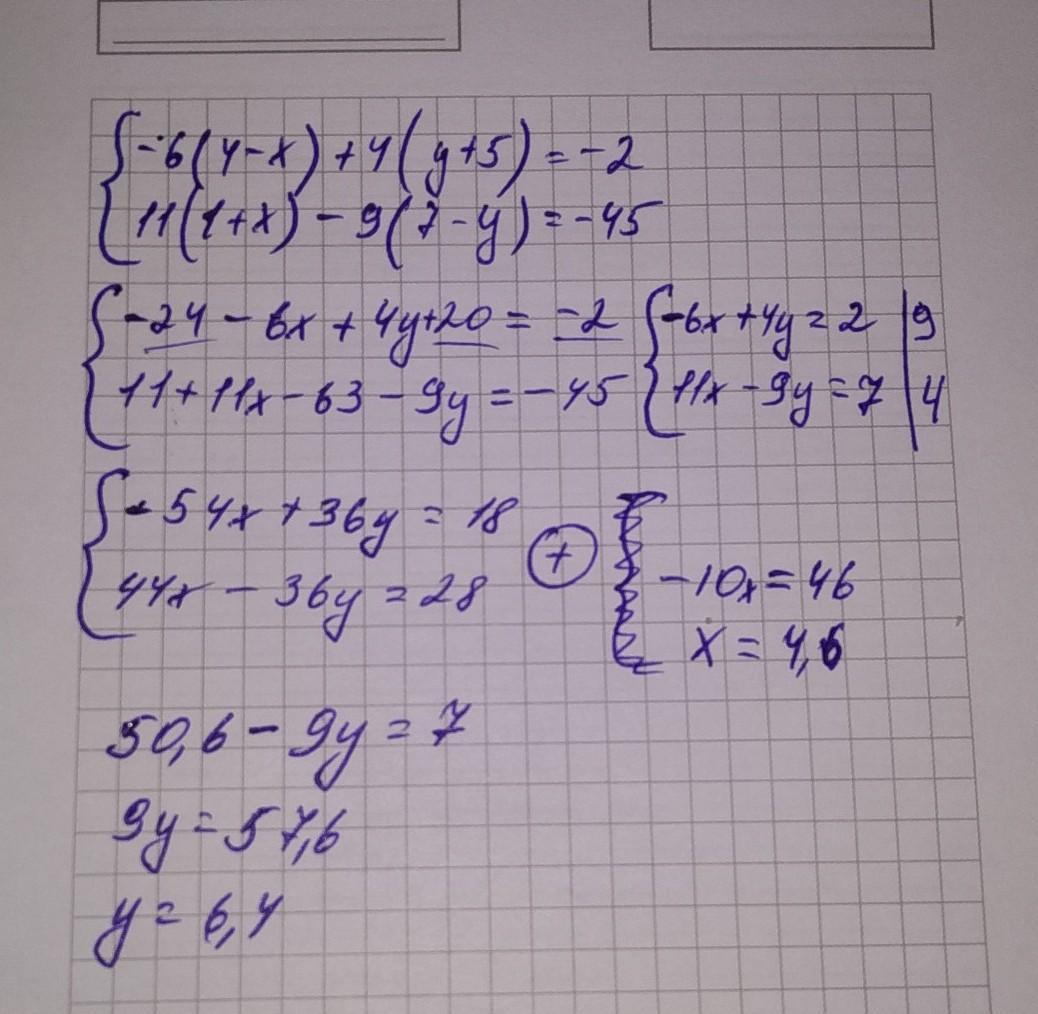 -6(4-x)+4(y+5)=-2
11(1+x)-9(7-y)=-45
-24-6x+4y+20=-2
11+11x-63-9y=-45
-6x+4y=2 | 9
11x-9y=7 | 4
-54x+36y=18
44x-36y=28
+
-10x=46
x=4,6
50,6-9y=7
9y=57,6
y=6,4